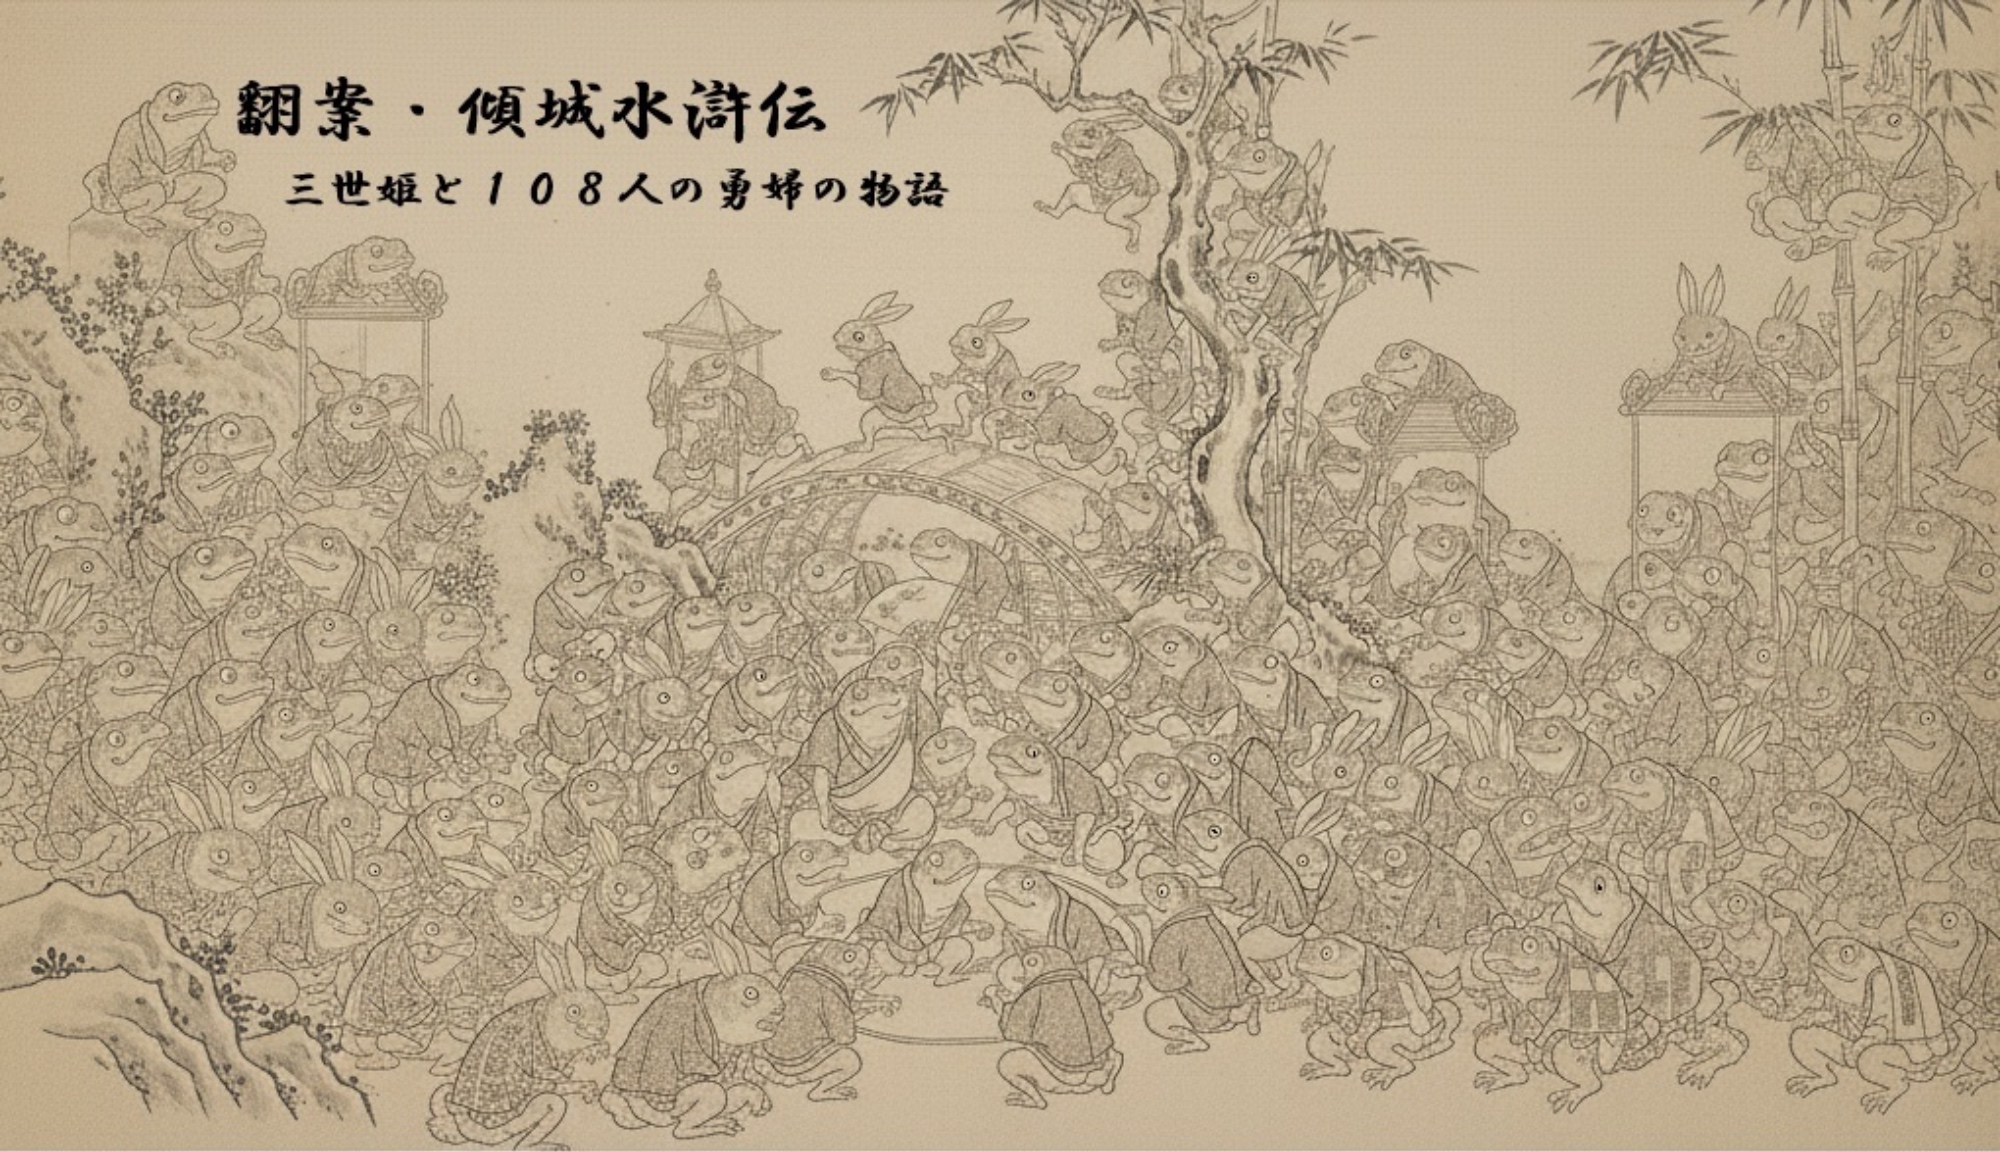 翻案・傾城水滸伝
三世姫と１０８人の勇婦の物語